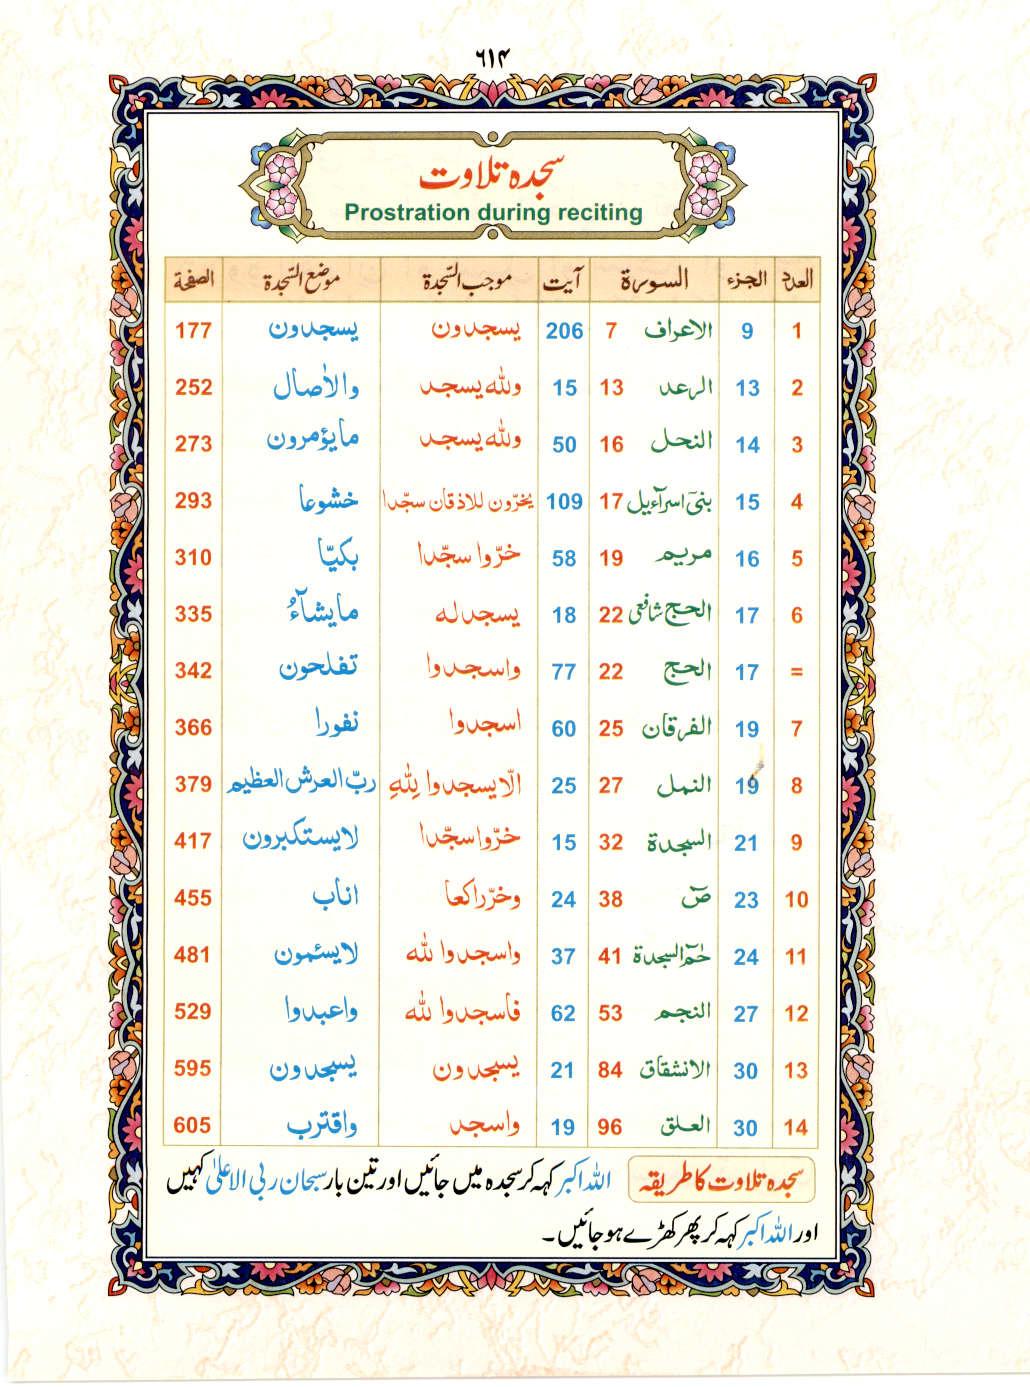 ٦١٤
سجدہ تلاوت
Prostration during reciting
العدد الجزء السورة آيت موجب السّجدة موضع السّجدة الصفحة
1 9 الاعراف 7 206 يسجدون يسجدون 177
2 13 الرعد 13 15 ولله يسجد والاٰصال 252
3 14 النحل 16 50 ولله يسجد مايؤمرون 273
4 15 بنیٓ اسرآءيل 17 109 يخرّون للاذقان سجّدا خشوعا 293
5 16 مريم 19 58 خرّوا سجّدا بكيّا 310
6 17 الحج شافعی 22 18 يسجد له مايشآءُ 335
= 17 الحج 22 77 واسجدوا تفلحون 342
7 19 الفرقان 25 60 اسجدوا نفورا 366
8 19 النمل 27 25 الّا يسجدوا لِلّٰهِ ربّ العرش العظيم 379
9 21 السجدة 32 15 خرّوا سجّدا لايستكبرون 417
10 23 صٓ 38 24 وخرّ راكعا اناب 455
11 24 حٰمٓ السجدة 41 37 واسجدوا لله لايسئمون 481
12 27 النجم 53 62 فاسجدوا لله واعبدوا 529
13 30 الانشقاق 84 21 يسجدون يسجدون 595
14 30 العلق 96 19 واسجد واقترب 605
سجدہ تلاوت کا طریقہ اللہ اکبر کہہ کر سجدہ میں جائیں اور تین بار سبحان ربی الاعلیٰ کہیں
اور اللہ اکبر کہہ کر پھر کھڑے ہو جائیں۔